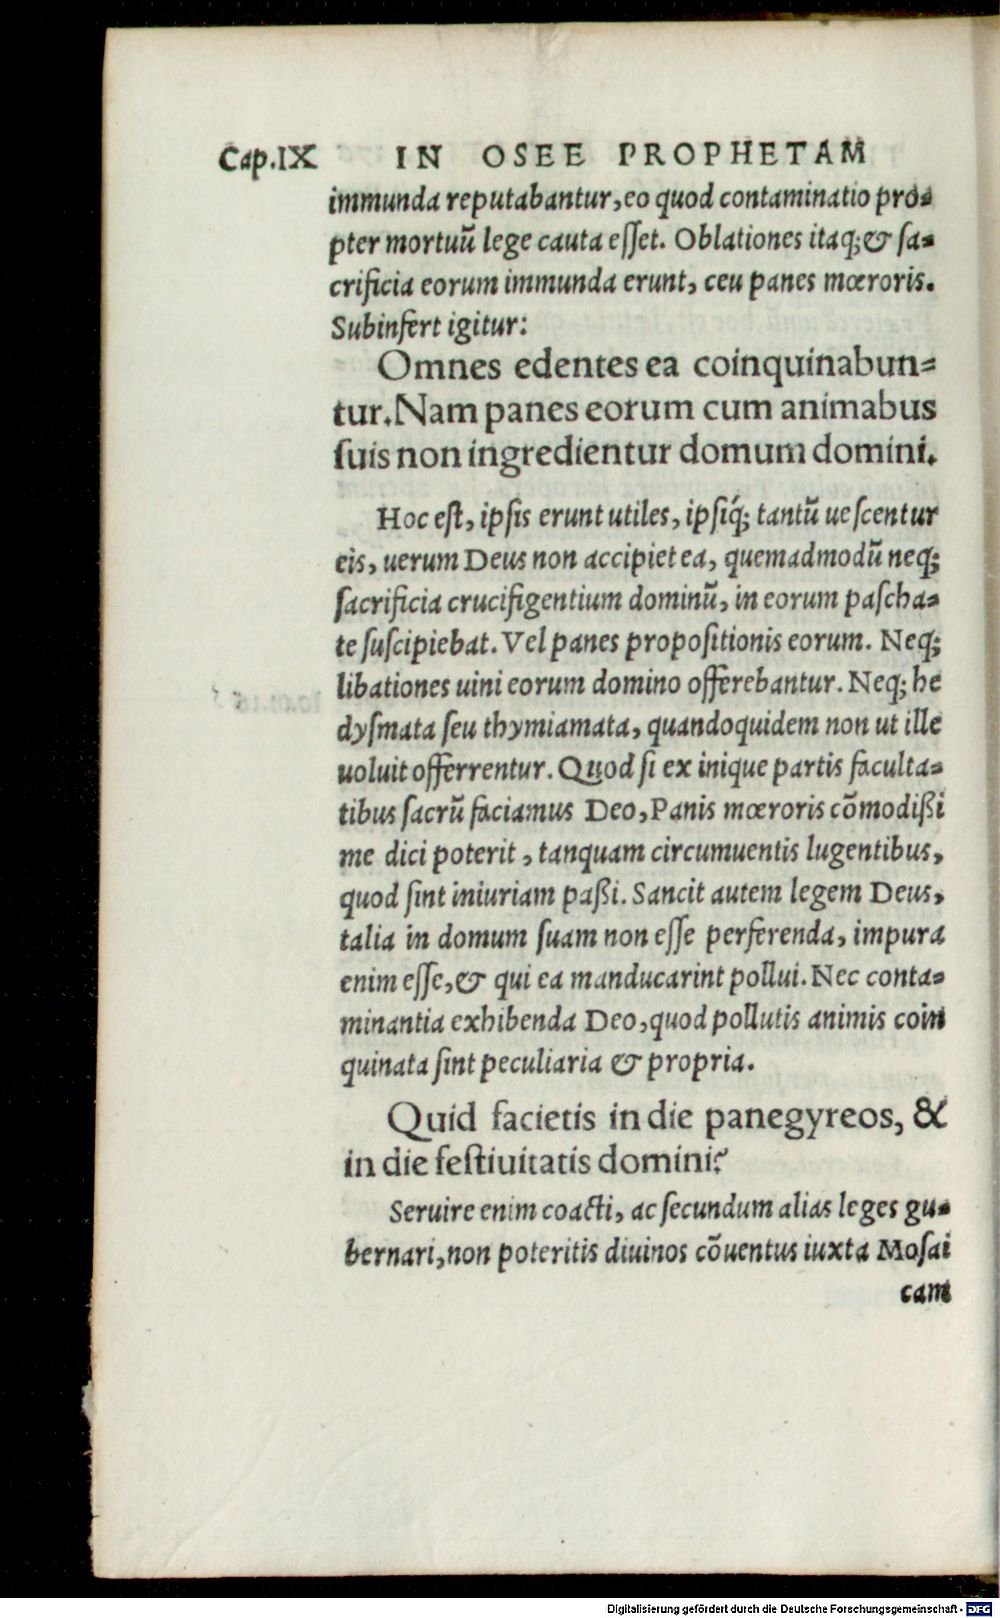 Cap.IX IN OSEE PROPHETAM
immunda reputabantur, eo quod contaminatio pro-
pter mortuũ lege cauta eſſet. Oblationes itaq; & ſa-
crificia eorum immunda erunt, ceu panes mœroris.
Subinfert igitur:
Omnes edentes ea coinquinabun-
tur. Nam panes eorum cum animabus
ſuis non ingredientur domum domini.
Hoc eſt, ipſis erunt utiles, ipſiq́; tantũ ueſcentur
eis, uerum Deus non accipiet ea, quemadmodũ neq;
ſacrificia crucifigentium dominũ, in eorum paſcha-
te ſuſcipiebat. Vel panes propoſitionis eorum. Neq;
libationes uini eorum domino offerebantur. Neq; he
dyſmata ſeu thymiamata, quandoquidem non ut ille
uoluit offerrentur. Quod ſi ex inique partis faculta-
tibus ſacrũ faciamus Deo, Panis mœroris cõmodißi
me dici poterit, tanquam circumuentis lugentibus,
quod ſint iniuriam paßi. Sancit autem legem Deus,
talia in domum ſuam non eſſe perferenda, impura
enim eſſe, & qui ea manducarint pollui. Nec conta-
minantia exhibenda Deo, quod pollutis animis coin
quinata ſint peculiaria & propria.
Quid facietis in die panegyreos, &
in die feſtiuitatis domini?
Seruire enim coacti, ac ſecundum alias leges gu-
bernari, non poteritis diuinos cõuentus iuxta Moſai
cam
Digitalisierung gefördert durch die Deutsche Forschungsgemeinschaft - DFG